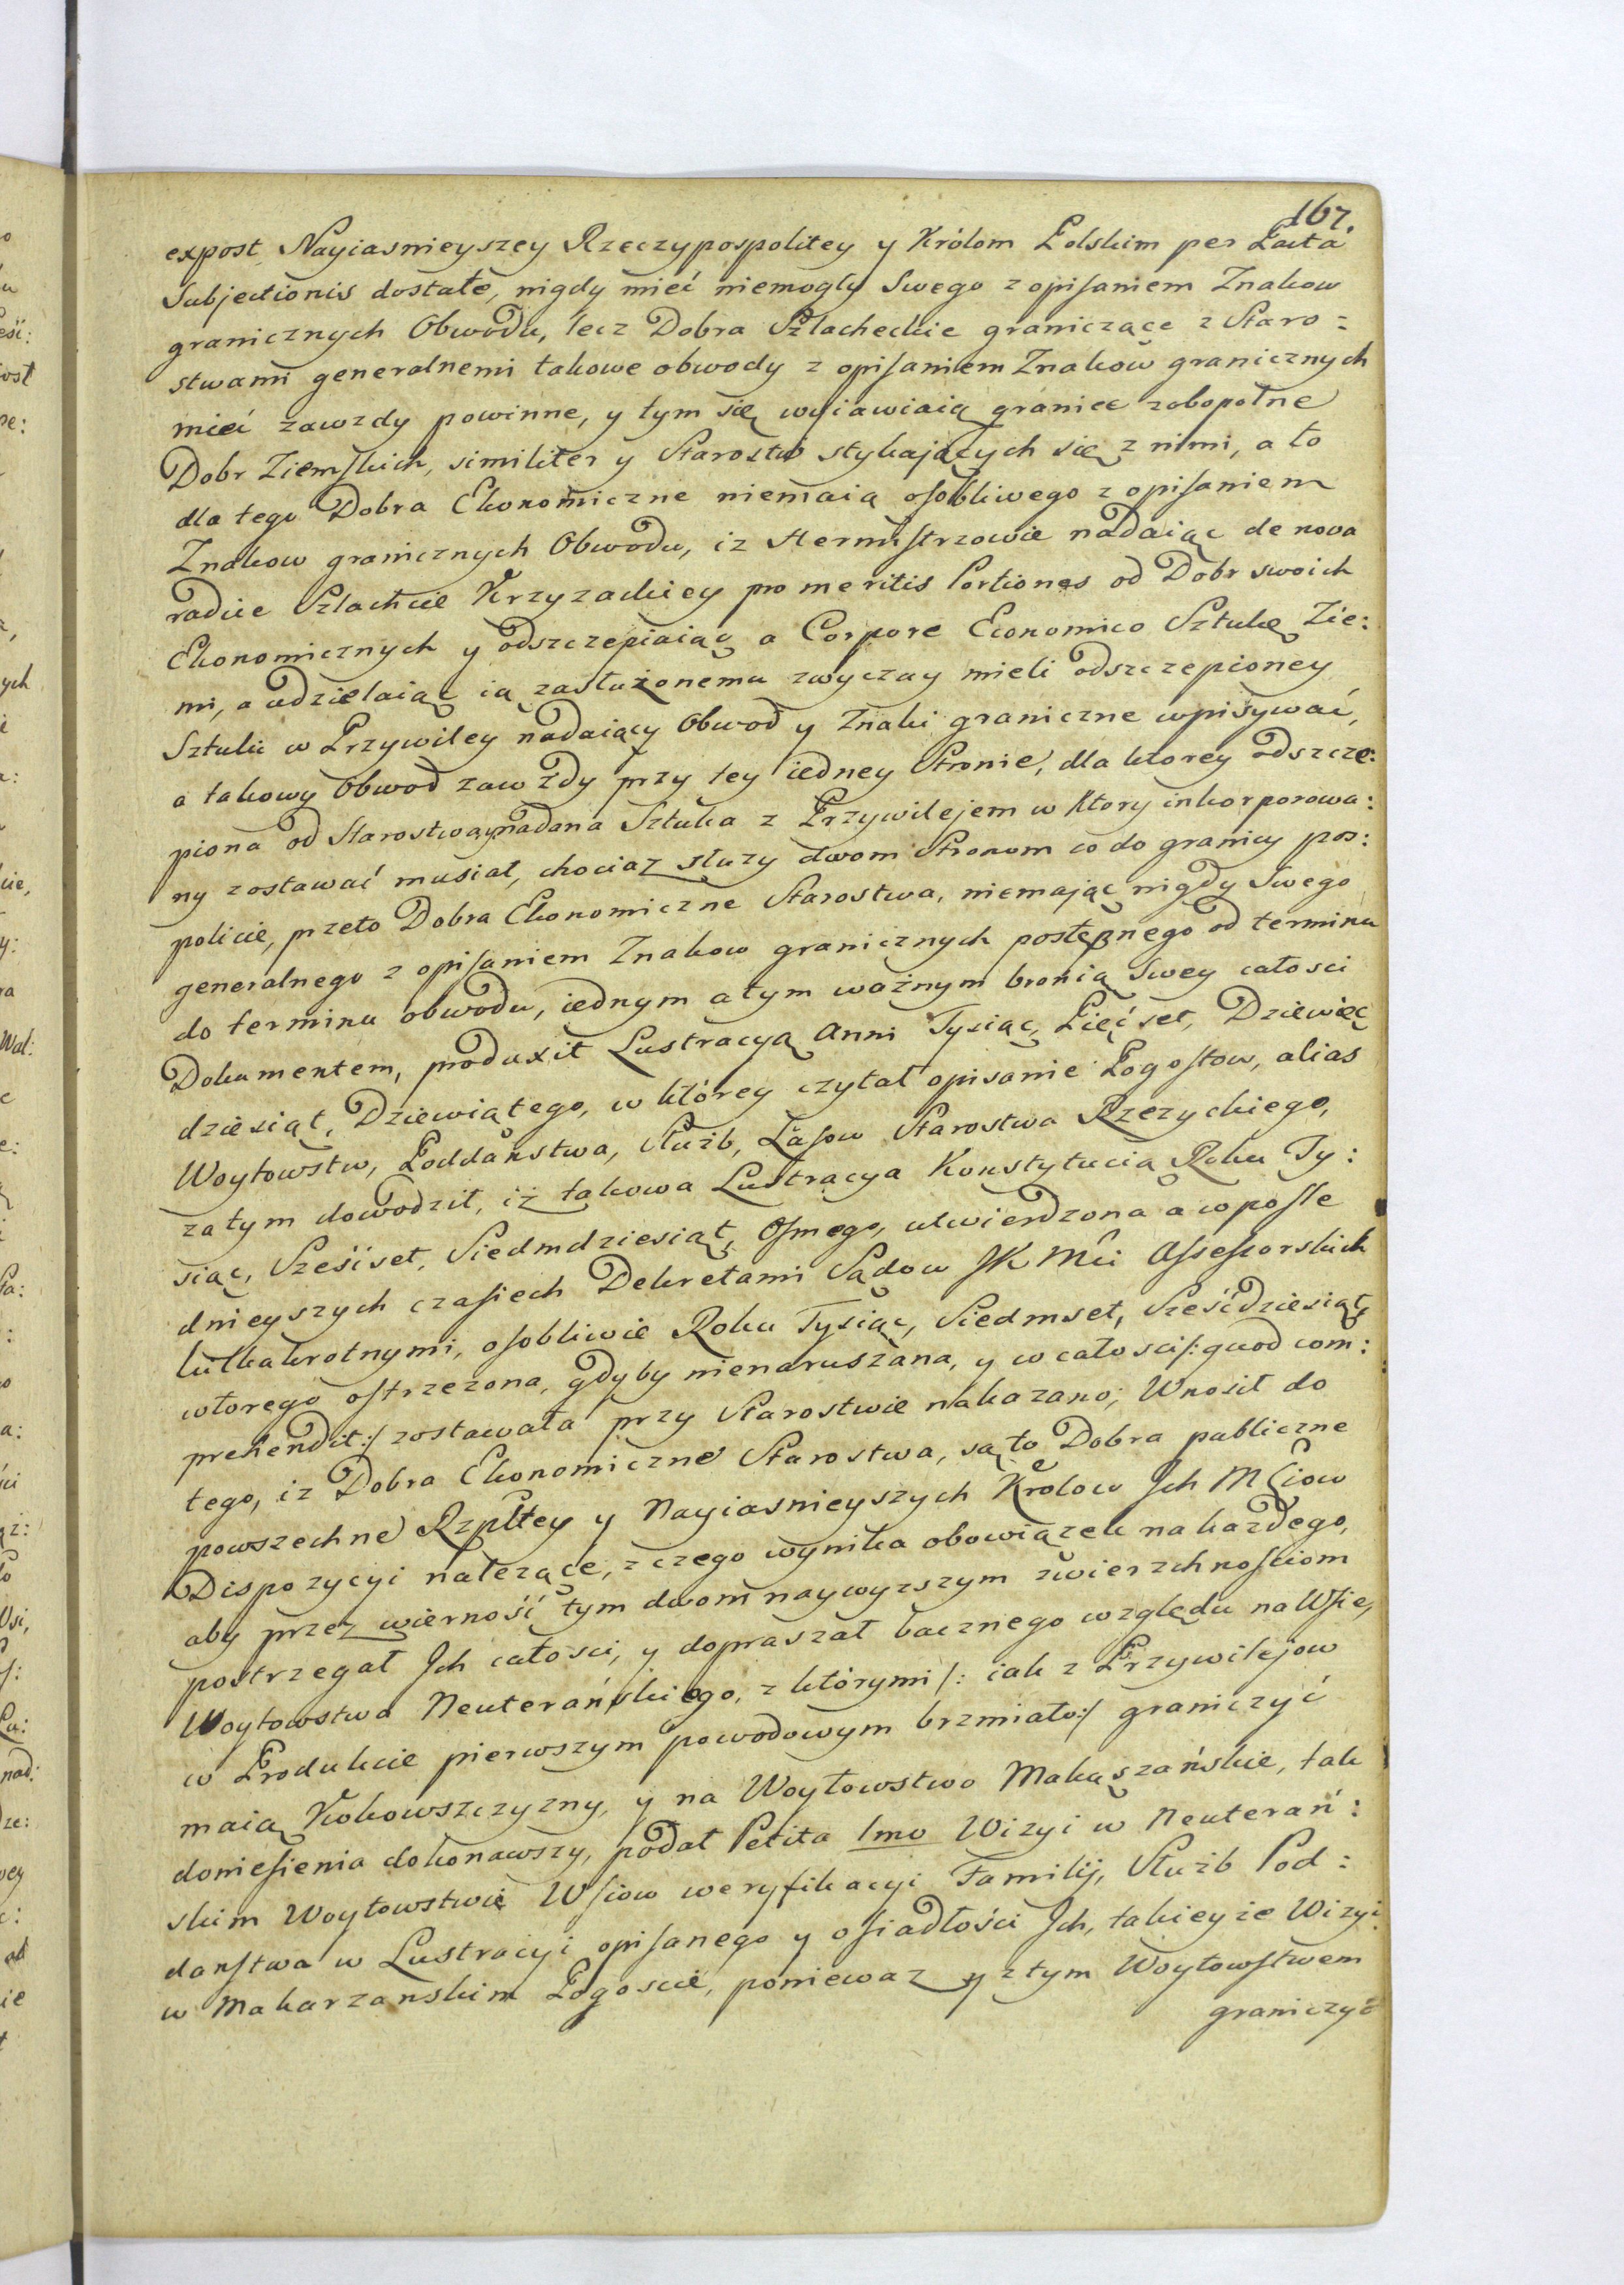 167.
expost Nayiasnieyszey Rzeczypospolitey y Królom Polskim per Pacta
Subjectionis dostałe, nigdy mieć niemogły Swego z opisaniem Znakow
granicznych Obwodu, lecz Dobra Szlacheckie graniczące z Staro=
stwami generalnemi takowe obwody z opisaniem Znakow granicznych
mieć zawzdy powinne, y tym się wyiawiaią granice zobopolne
Dobr Ziemskich, similiter y Starostw stykających się z nimi, a to
dla tego Dobra Ekonomiczne niemaią osobliwego z opisaniem
Znakow granicznych Obwodu, iz Hermistrzowie nadaiąc de nova
radice Szlachcie Krzyzackiey pro meritis Portiones od Dobr swoich
Ekonomicznych y odszczepiaiąc a Corpore Economico Sztukę Zie:
mi, a udzielaiąc ią zasłużonemu zwyczay mieli odszczepioney
Sztuki w Przywiley nadaiący Obwod y Znaki graniczne wpisywać,
a takowy Obwod zawżdy przy tey iedney Stronie, dla ktorey odszcze:
piona od Starostwa y nadana Sztuka z Przywilejem w ktory inkorporowa:
ny zostawać musiał, chociaz słuzy dwom Stronom co do granicy pos:
policie, przeto Dobra Ekonomiczne Starostwa, niemając nigdy Swego
generalnego z opisaniem Znakow granicznych postępnego od terminu
do terminu obwodu, iednym a tym ważnym bronią Swey całosci
Dokumentem, produxit Lustracyą Anni Tysiąc, Pięćset, Dziewięc
dziesiąt, Dziewiątego, w którey czytał opisanie Pogostow, alias
Woytowstw, Poddaństwa, Służb, Lasow Starostwa Rzezyckiego,
zatym dowodził, iż takowa Lustracya Konstytucią Roku Ty:
siąc, Sześćset, Siedmdziesiąt, Osmego, utwierdzona a w posle
dnieyszych czasiech Dekretami Sądow JK Mći Assessorskich
kilkakrotnymi, osobliwie Roku Tysiąc, Siedmset, Sześćdziesiąt,
wtorego ostrzezona, gdyby nienaruszana, y w całosci /:quod com:
prehendit:/ zostawała przy Starostwie nakazano; Wnosił do
tego, iz Dobra Ekonomiczne Starostwa, są to Dobra publiczne
powszechne Rzpltey y Nayiasnieyszych Krolow Jch Mściow
Dispozycyi nalezące, z czego wynika obowiązek na każdego,
aby przez wierność tym dwom naywyzszym zwierzchnosciom
postrzegał Jch całosci, y dopraszał bacznego względu na Wsie,
Woytowstwa Neuterańskiego, z którymi /: iak z Przywilejow
w Produkcie pierwszym powodowym brzmiało:/ graniczyć
maią Kokowszczyzny, y na Woytowstwo Makaszańskie, tak
doniesienia dokonawszy, podał Petita 1mo Wizyi w Neuterań:
skim Woytowstwie Wsiow weryfikacyi Familij, Służb Pod:
danstwa w Lustracyi opisanego y osiadłości Jch, takieyże Wizyi
w Makarzanskim Pogoscie, poniewaz y z tym Woytowstwem
graniczyć